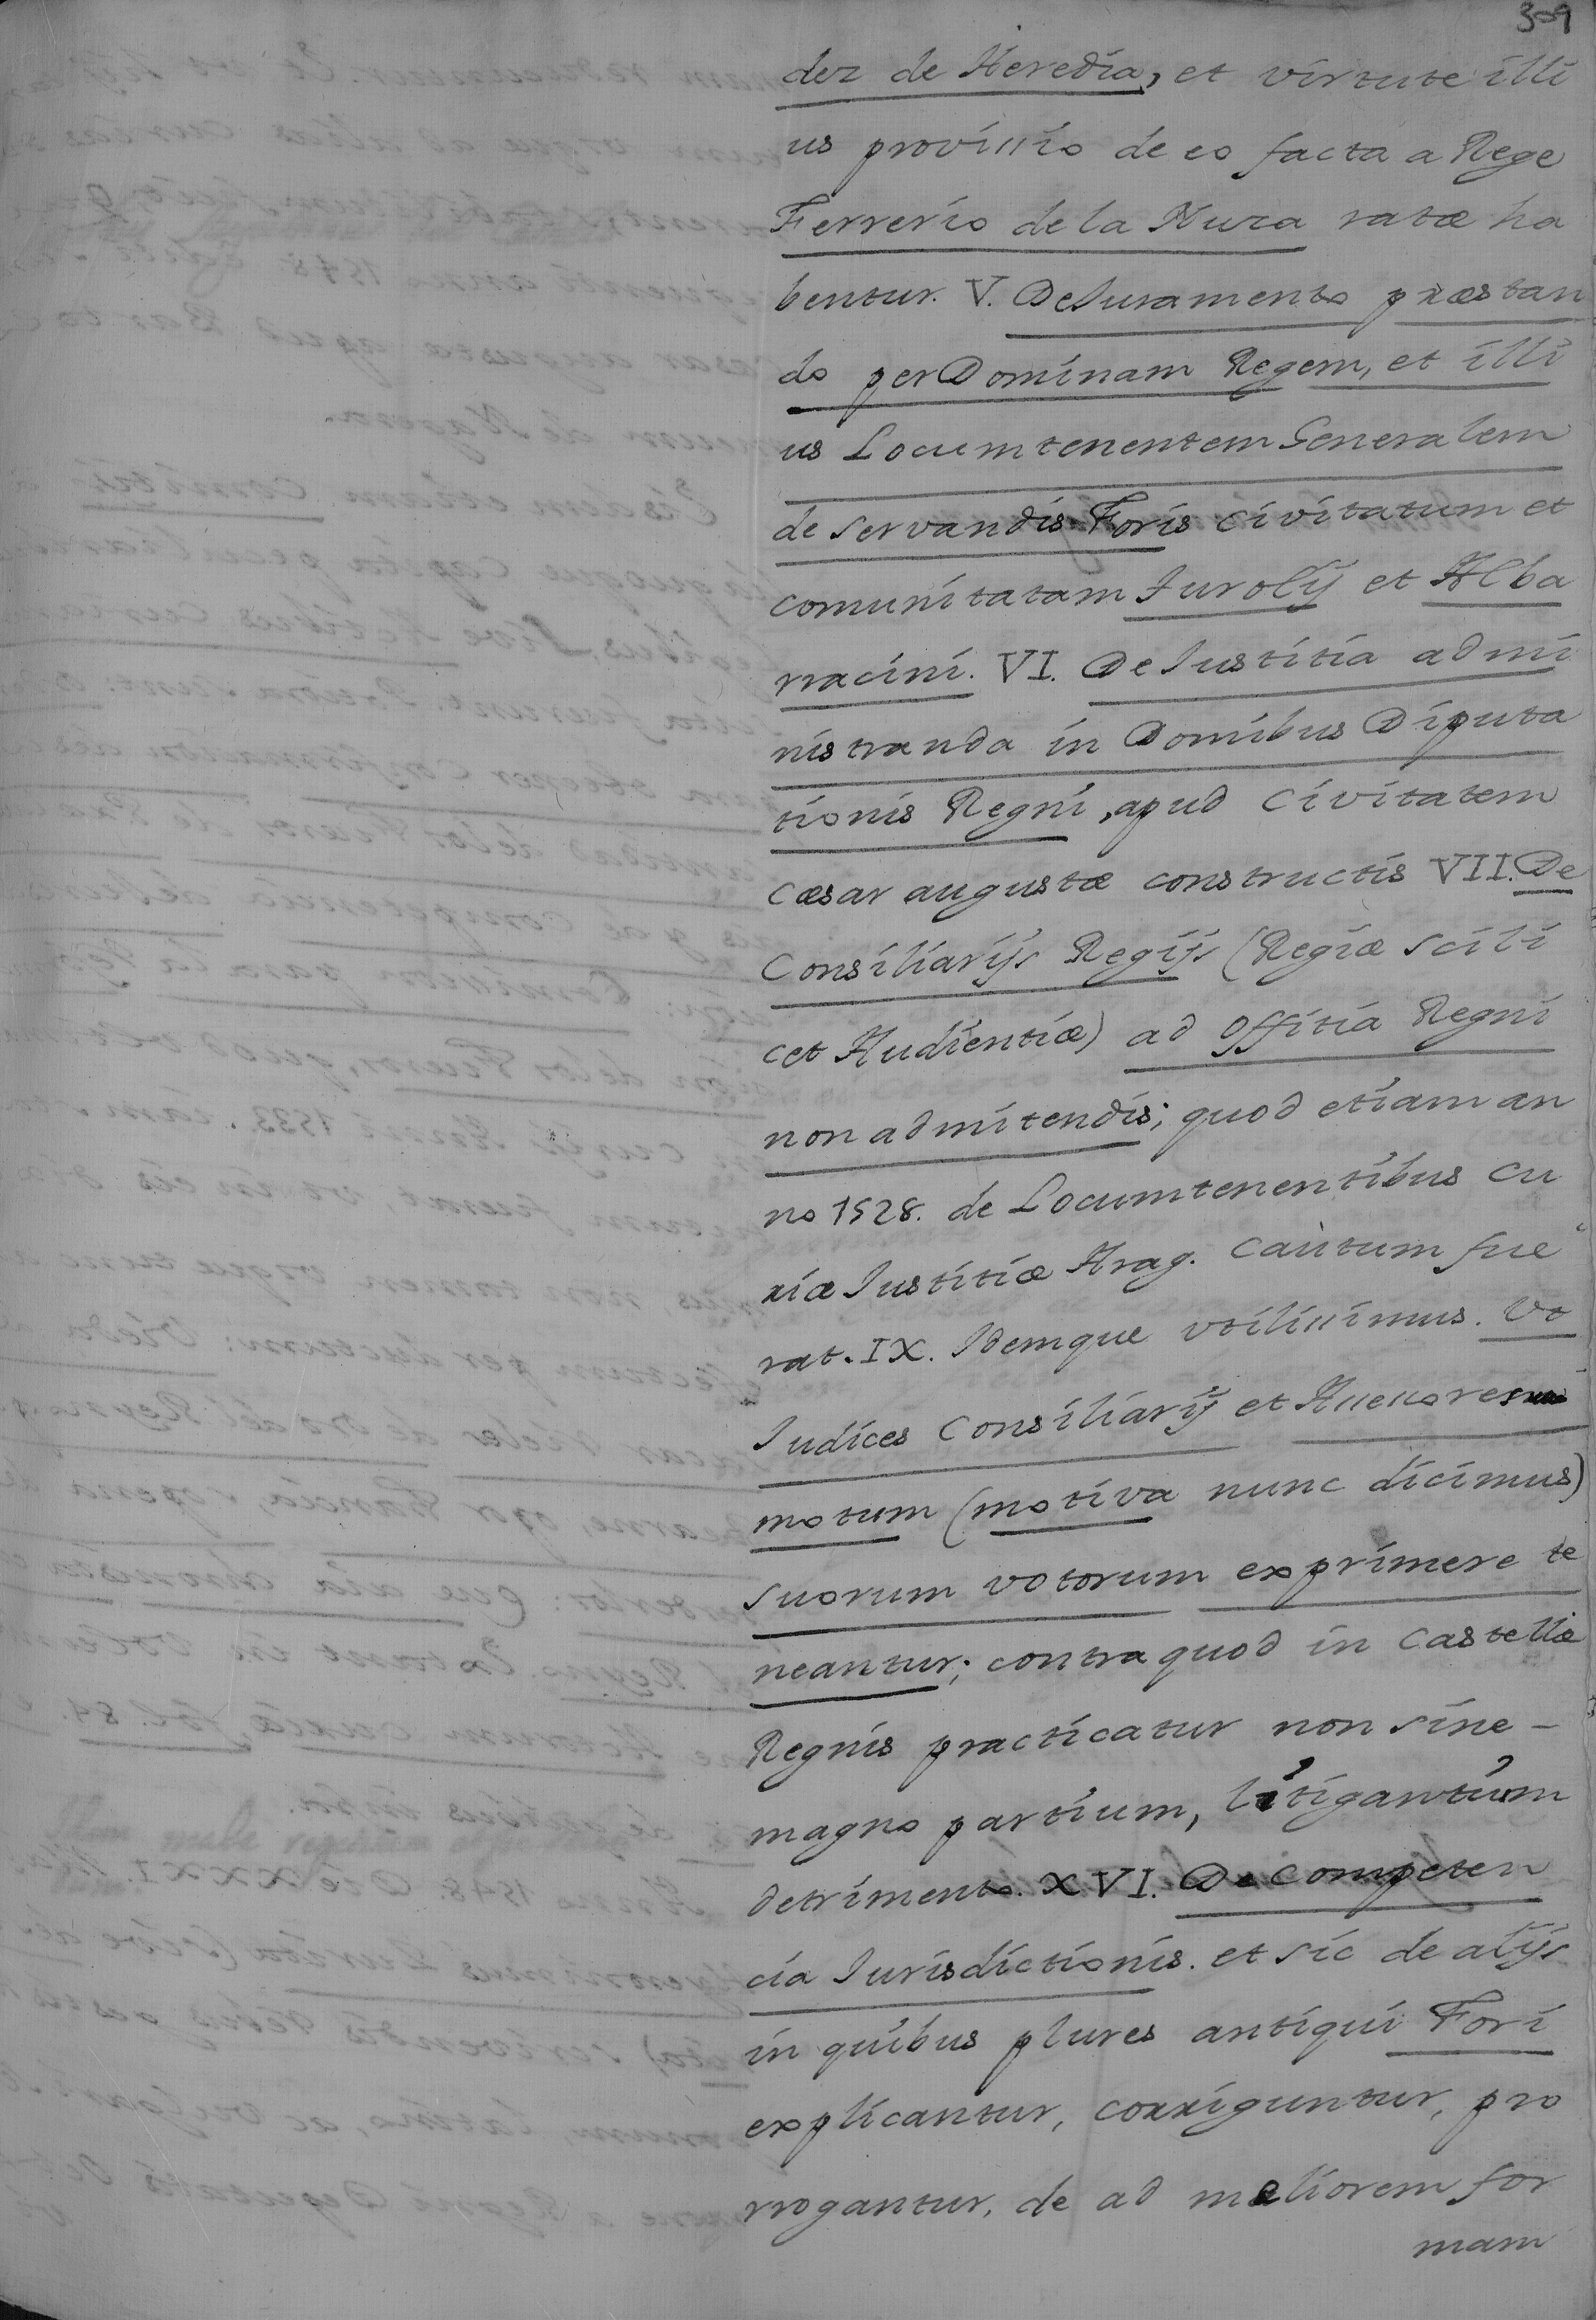 309
dez de Heredia, et virtute illi
us provissio de eo facta a Rege
Ferrerio de la Nuza ratæ ha
bentur. V. De Iuramento præstan
do per Dominam Regem, et illi
us Locumtenentem Generalem
de servandis Foris civitatum et
comunitatam Turolij et Alba
rracini. VI. De Iustitia admi
nistranda in Domibus Diputa
tionis Regni, apud Civitatem
Cæsar augustæ constructis VII. De
Consiliarijs Regijs (Regiæ scili
cet Audientiæ) ad offitia Regni
non admitendis; quod etiam an
no 1528. de Locumtenentibus cu
riæ Iustitiæ Arag. Cautum fue
rat. IX. Idemque vtilissimus. Vt
Iudices Consiliarij et Assessores
motum (motiva nunc dicimus)
suorum votorum exprimere te
neantur; contra quod in Castellæ
Regnis practicatur non sine -
magno partium, litigantium
detrimento. XVI. De Competen
cia Iurisdictionis. et sic de alijs
in quibus plures antiqui Fori
explicantur, corriguntur, pro
rrogantur, de ad meliorem for
mam